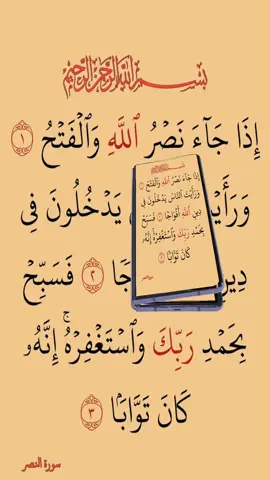 بِسْمِ ٱللَّهِ ٱلرَّحْمَٰنِ ٱلرَّحِيمِ
إِذَا جَآءَ نَصْرُ ٱللَّهِ وَٱلْفَتْحُ ١
وَرَأَيْ يَدْخُلُونَ فِى
دِينِ جَا ٢ فَسَبِّحْ
بِحَمْدِ رَبِّكَ وَٱسْتَغْفِرْهُ ۚ إِنَّهُۥ
كَانَ تَوَّابًۢا ٣
سورة النصر
إِذَا جَآءَ نَصْرُ ٱللَّهِ وَٱلْفَتْحُ ١
وَرَأَيْتَ ٱلنَّاسَ يَدْخُلُونَ فِى
دِينِ ٱللَّهِ أَفْوَاجًا ٢ فَسَبِّحْ
بِحَمْدِ رَبِّكَ وَٱسْتَغْفِرْهُ ۚ إِنَّهُۥ
كَانَ تَوَّابًۢا ٣
سورة النصر